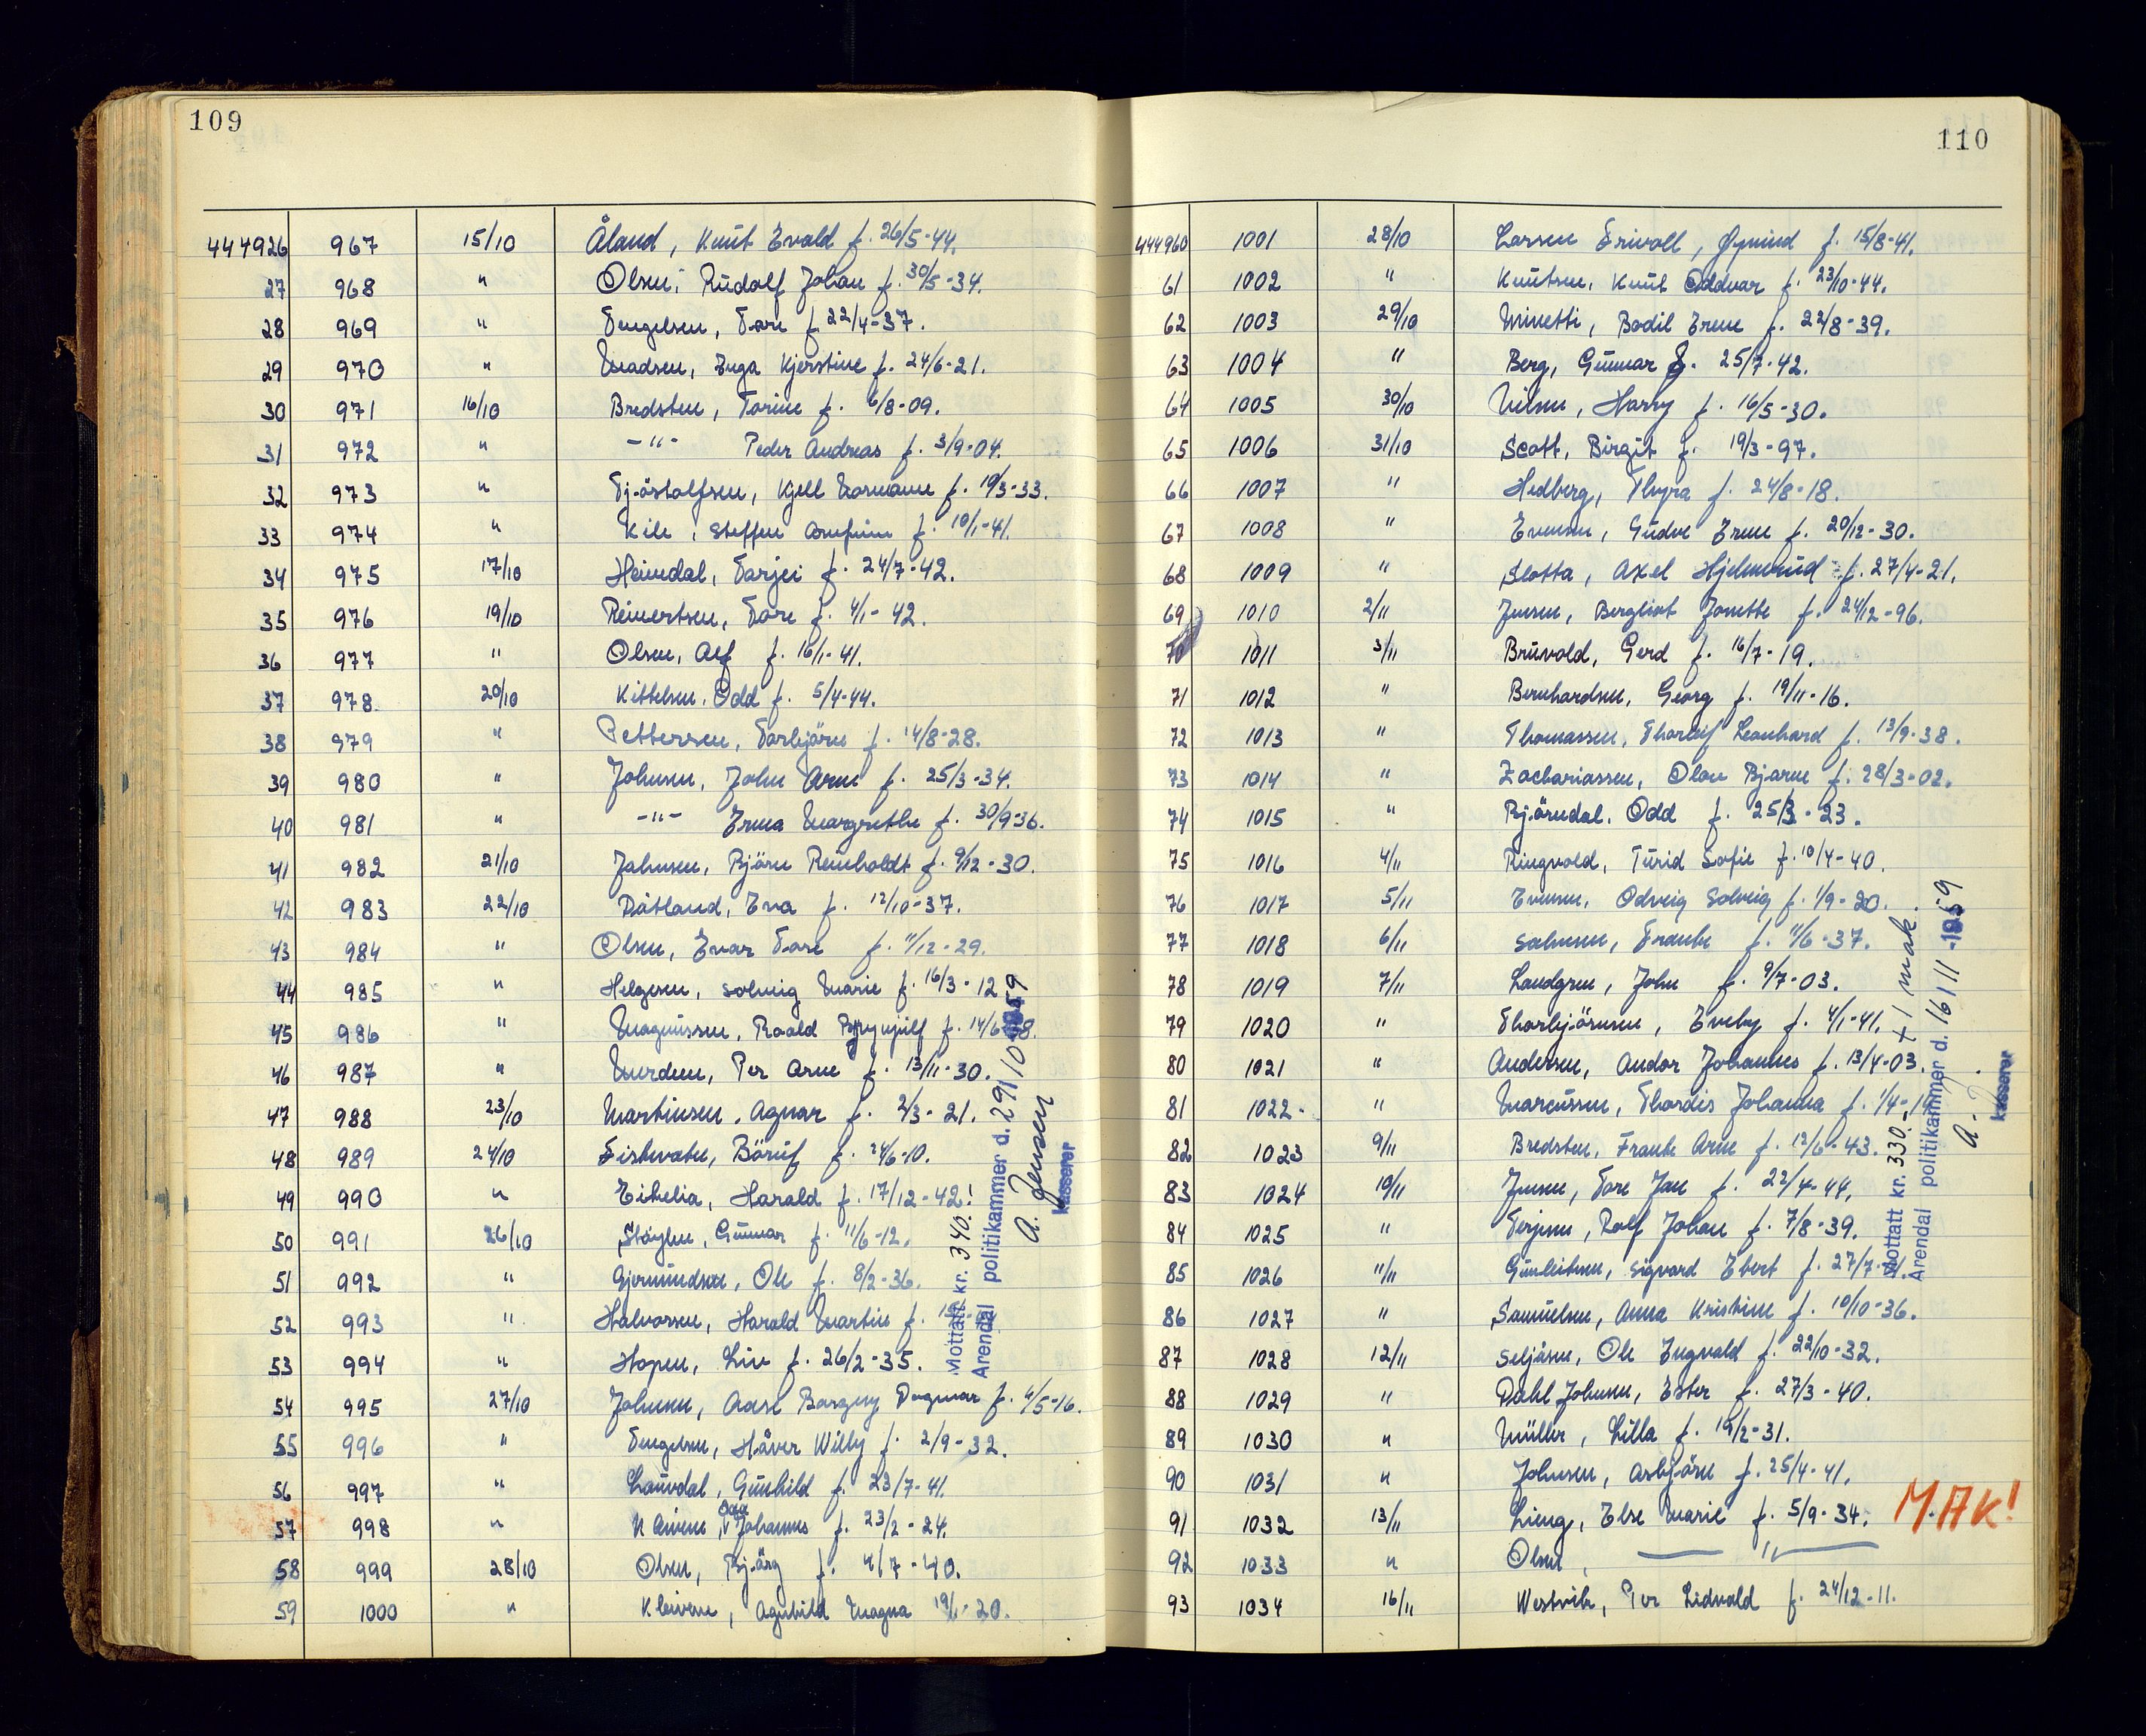 109
444926 967 15/10 Åland, Knut Evald f. 26/5-44.
27 968 " Olsen, Rudolf Johan f. 30/5-34.
28 969 " Tengelsen, Tore f 22/4-37.
29 970 " Madsen, Inga Kjerstine f. 24/6-21.
30 971 16/10 Bredsten, Torine f. 6/8-09.
31 972 " -"- Peder Andreas f. 3/9-04.
32 973 " Tjöstolfsen, Kjell Normann f. 19/3-33.
33 974 " Kile, Steffen Arnfinn f. 10/1-41.
34 975 17/10 Heimdal, Tarjei f. 24/7-42.
35 976 19/10 Reinertsen, Tore f. 4/1-42.
36 977 " Olsen, Alf f. 16/1-41.
37 978 20/10 Kittelsen, Odd f. 5/4-44.
38 979 " Pettersen, Torbjörn f. 14/8-28.
39 980 " Johnsen, John Arne f. 25/3-34.
40 981 " -"- Erna Margrethe f. 30/9-36.
41 982 21/10 Johnsen, Björn Reinholdt f. 9/12-30.
42 983 22/10 Dåtland, Eva f. 12/10-37.
43 984 " Olsen, Evar Tore f. 11/12-29.
44 985 " Helgesen, Solveig Marie f. 16/3-12
45 986 " Magnussen, Roald f. 14/6
46 987 " Merdenn, Per Arne f. 13/11-30.
47 988 23/10 Martinsen, Agnar f. 2/3-21.
48 989 24/10 Fiskvatn, f. 24/6-10.
49 990 " Eikelia, Harald f. 17/12-42!
50 991 26/10 Stöylen, Gunnar f. 11/6-12.
51 992 " Gjermundsen, Ole f. 8/2-36.
52 993 " Halvorsen, Harald Martin f.
53 994 " Hopen, Liv f. 26/2-35.
54 995 27/10 Johnsen, Aase Borgny Dagmar f. 4/5-16.
55 996 " Tengelsen, Håver Willy f. 2/9-32.
56 997 " Lauvdal, Gunhild f. 23/7-41.
57 998 " Johannes f. 23/2-24.
58 999 28/10 Olsen, Bjørg f. 4/7-40.
59 1000 " Kleivene, Agnhild Magna 19/1-20.
Mottatt kr. 340.
Arendal politikammer d. 29/10 1959
A. Jensen
kasserer
110
444960 1001 28/10 Larsen Trivoll, Øyvind f. 15/8-41.
61 1002 " Knutsen, Knut Oddvar f. 23/10-44.
62 1003 29/10 Minetti, Bodil Irene f. 22/8-39.
63 1004 " Berg, Gunnar f. 25/7-42.
64 1005 30/10 Nilsen, Harry f. 16/5-30.
65 1006 31/10 Scott, Birgit f. 19/3-97.
66 1007 " Hedberg, Thyra f. 24/8-18.
67 1008 " Evensen, Gudve Irene f. 20/12-30.
68 1009 " Slotta, Axel Hjelmerud f. 27/4-21.
69 1010 2/11 Jensen, Bergliot Jonette f. 24/12-96.
70 1011 3/11 Bruvold, Gerd f. 16/7-19.
71 1012 " Bernhardsen, Georg f. 19/11-16.
72 1013 " Thomassen, Thorleif Leonhard f. 13/9-38.
73 1014 " Zachariassen, Olav Bjarne f. 28/3-02.
74 1015 " Björndal, Odd f. 25/3-23.
75 1016 4/11 Ringvold, Turid Sofie f. 10/4-40.
76 1017 5/11 Evensen, Odveig Solveig f. 1/9-20.
77 1018 6/11 Salvesen, Frank f. 11/6-37.
78 1019 7/11 Landgren, John f. 9/7-03.
79 1020 " Thorbjörnsen, Eveby f. 4/1-41.
80 1021 " Andersen, Andor Johannes f. 13/4-03.
81 1022 " Marcussen, Thordis Johanna f. 1/4-
82 1023 9/11 Bredsten, Frank Arne f. 13/6-43.
83 1024 10/11 Jensen, Tore Jan f. 22/4-44.
84 1025 " Terjesen, Rolf Johan f. 7/8-39.
85 1026 11/11 Gunleiksen, Sigvard Ebert f. 27/7-
86 1027 " Samuelsen, Anna Kristine f. 10/10-36.
87 1028 12/11 Seljåsen, Ole Ingvald f. 22/10-32.
88 1029 " Dahl Johnsen, Ester f. 27/3-40.
89 1030 " Müller, Lilla f. 19/2-31.
90 1031 " Johnsen, Asbjörn f. 25/4-41.
91 1032 13/11 Lieng, Else Marie f. 5/9-34. MAK!
92 1033 " Olsen, — " —
93 1034 16/11 Westvik, Per Lidvald f. 24/12-11.
Mottatt kr. 330, + 1 mak.
Arendal politikammer d. 16/11 -1959
A.
kasserer